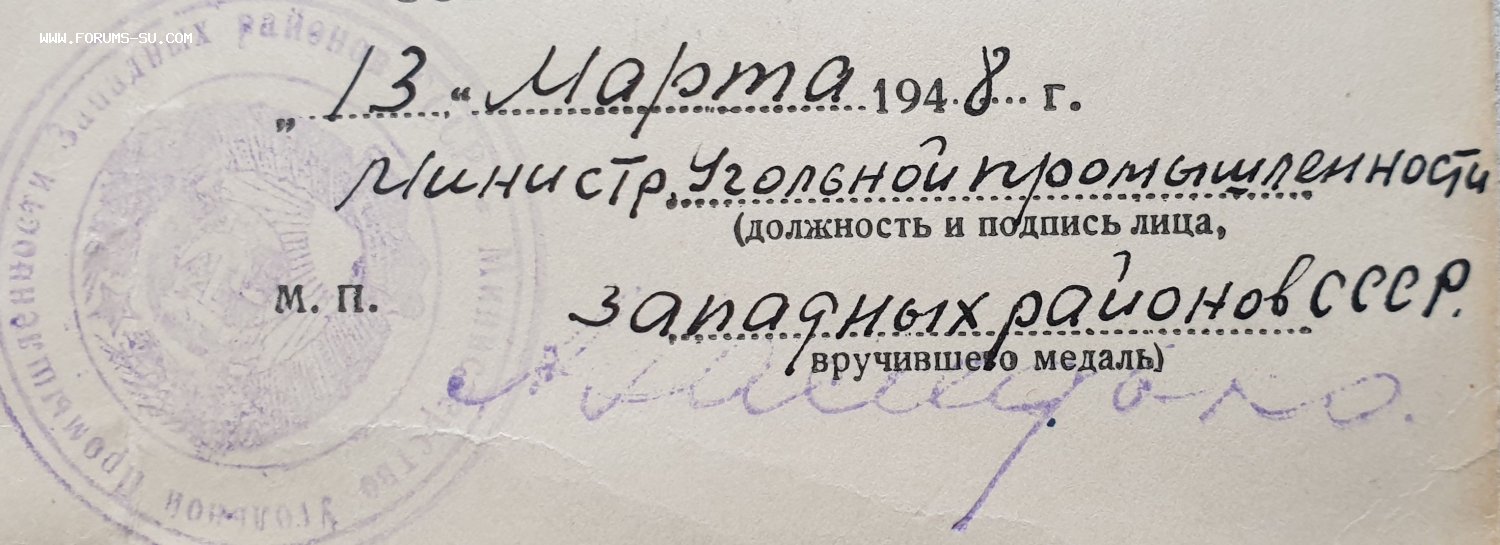 WWW.FORUMS-SU.COM
„13“ Марта 1948 г.
Министр Угольной промышленности
(должность и подпись лица,
М. П.
Западных районов СССР.
вручившего медаль)
Министерство Угольной Промышленности Западных районов